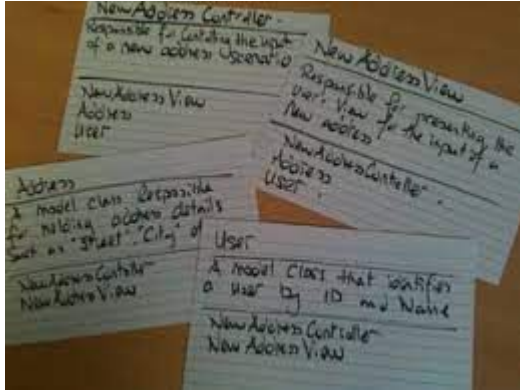 New Address Controller.
Responsible for the input
of a new address scenario
New Address View
Address
User
New Address View
Responsible for presenting the
user's view for the input of a
new address
New Address Controller.
Address
User.
Address
A model class Responsible
for holding address details
such as "Street", "City" of
New Address Controller
New Address View
User
A model class that identifies
a user by ID and Name
New Address Controller
New Address View